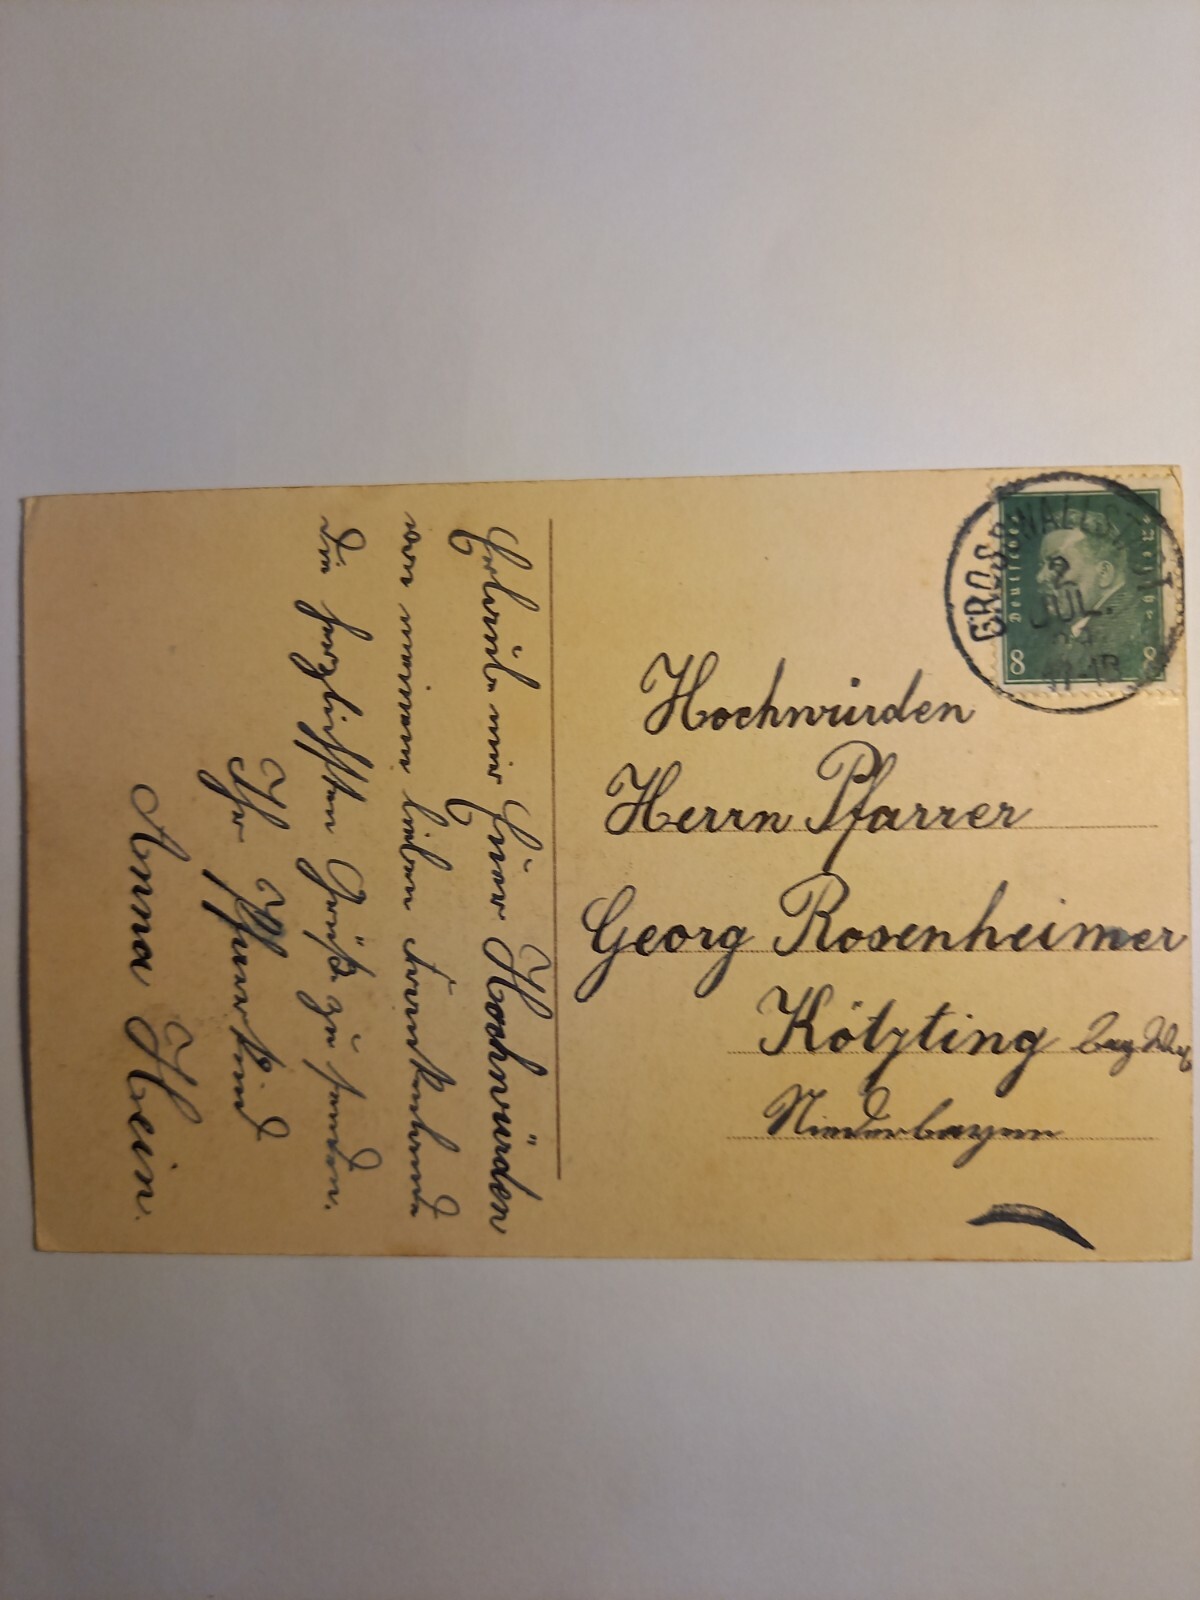 Hochwürden
Herrn Pfarrer
Georg Rosenheimer
Kötzting Bay. Wald
Niederbayern
Erlaube mir Euer Hochwürden
von meinem lieben
die herzlichsten Grüße zu senden.
Ihr Pfarrkind
Anna Hein.
Deutsches Reich
8 8
2
JUL.